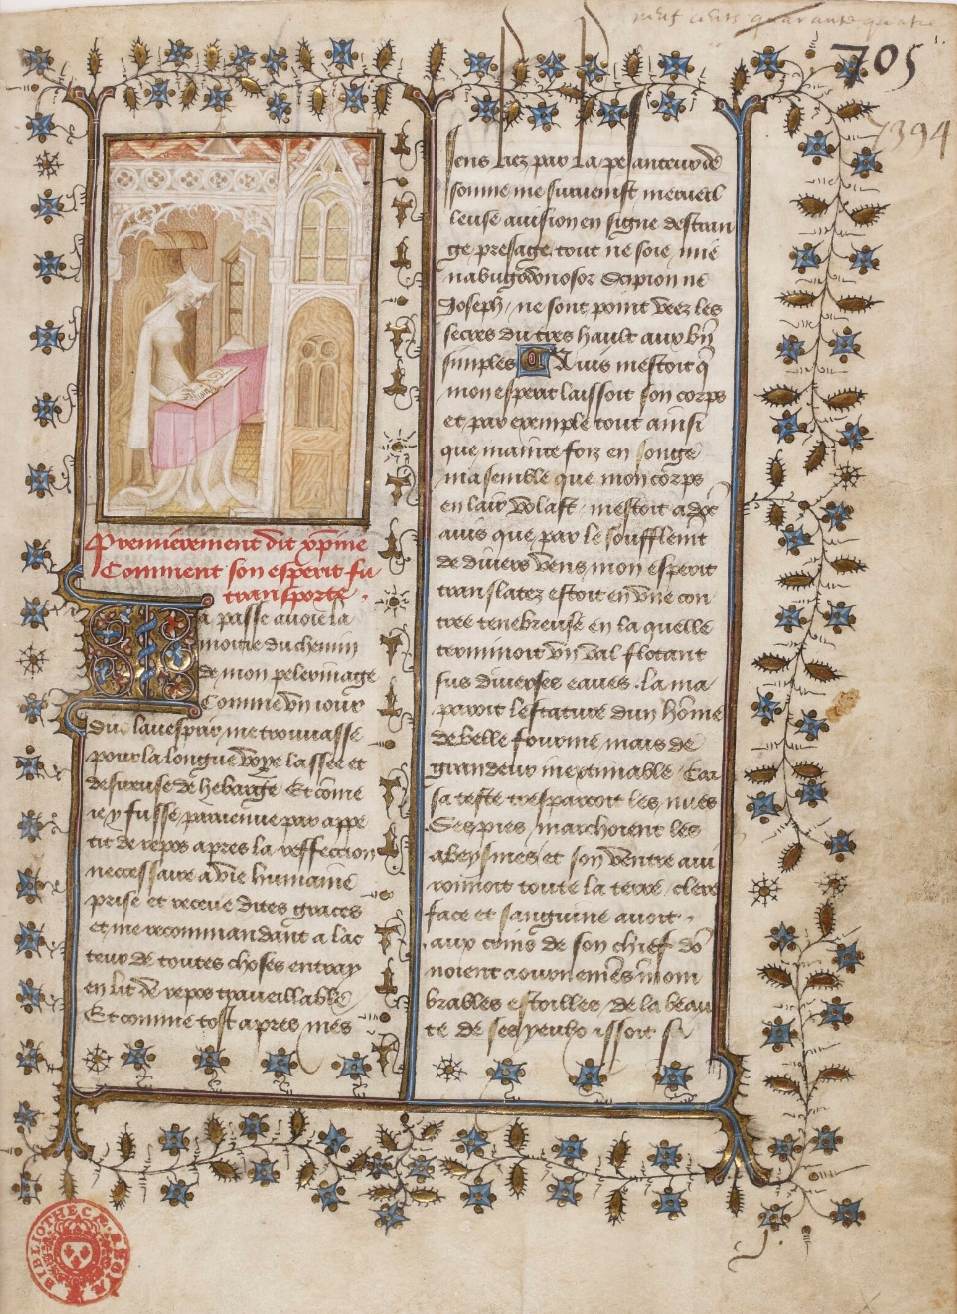 neuf cents quarante quatre
705
7394
Premierement dit xp̄ine
Comment son esperit fu
transporte.
Ia passe auoie la
moitie du chemin
de mon pelerinage
Comme vn iour
du lauespir me trouuasse
pour la longue voye lassee et
desireuse de hebarge Et cōme
ie y fusse paruenue par appe
tit de repos apres la reffection
necessaire a vie humaine
prise et receue dites graces
et me recommandant a lac
teur de toutes choses entray
en lit de repos trauueillable
Et comme tost apres mes
sens liez par la pesanteur de
somme me suruenist merueil
leuse auision en signe destran
ge presage tout ne soie mie
nabugodonosor Scipion ne
Joseph / ne sont point veez les
secres du tres hault aux bn̄
simples Auis mestoit q̄
mon esperit laissoit son corps
et par exemple tout ainsi
que mainte foiz en songe
ma semble que mon corps
en lair volast mestoit adōc
auis que par le soufflemt
de diuers vens mon esperit
translatez estoit en vne con
tree tenebreuse en la quelle
terminoit vn val flotant
sus diuerses eaues . la ma
paroit lestature dun hōme
de belle fourme mais de
grandeur inextimable Car
sa teste trespaçoit les nues
Ses pies marchoient les
abeysmes et son ventre aui
ronnoit toute la terre / clere
face et sanguine auoit .
aux crins de son chief dō
noient aournemēs innom
brables estoilles / de la beau
te de ses yeulx issoit si
BIBLIOTHECÆ REGIÆ